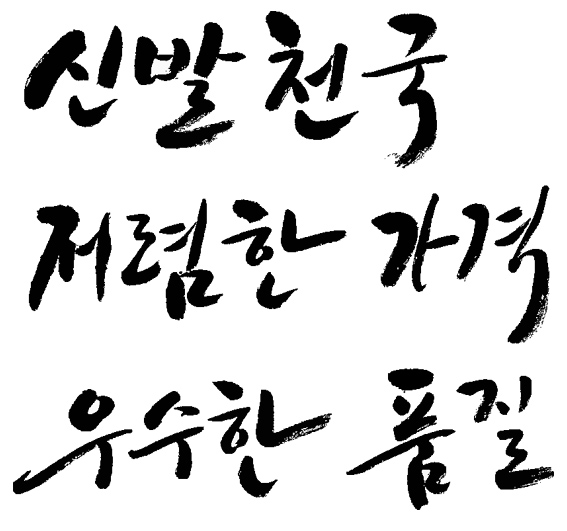 신발 천국
저렴한 가격
우수한 품질